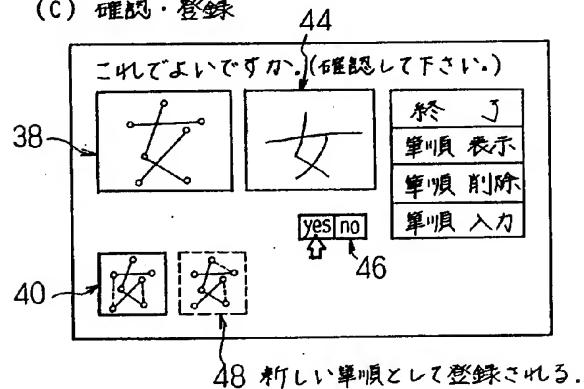 (C) 確認・登録
44
これでよいですか。(確認して下さい。)
38
女
終 了
筆順 表示
筆順 削除
筆順 入力
yes no
46
40
48 新しい筆順として登録される.